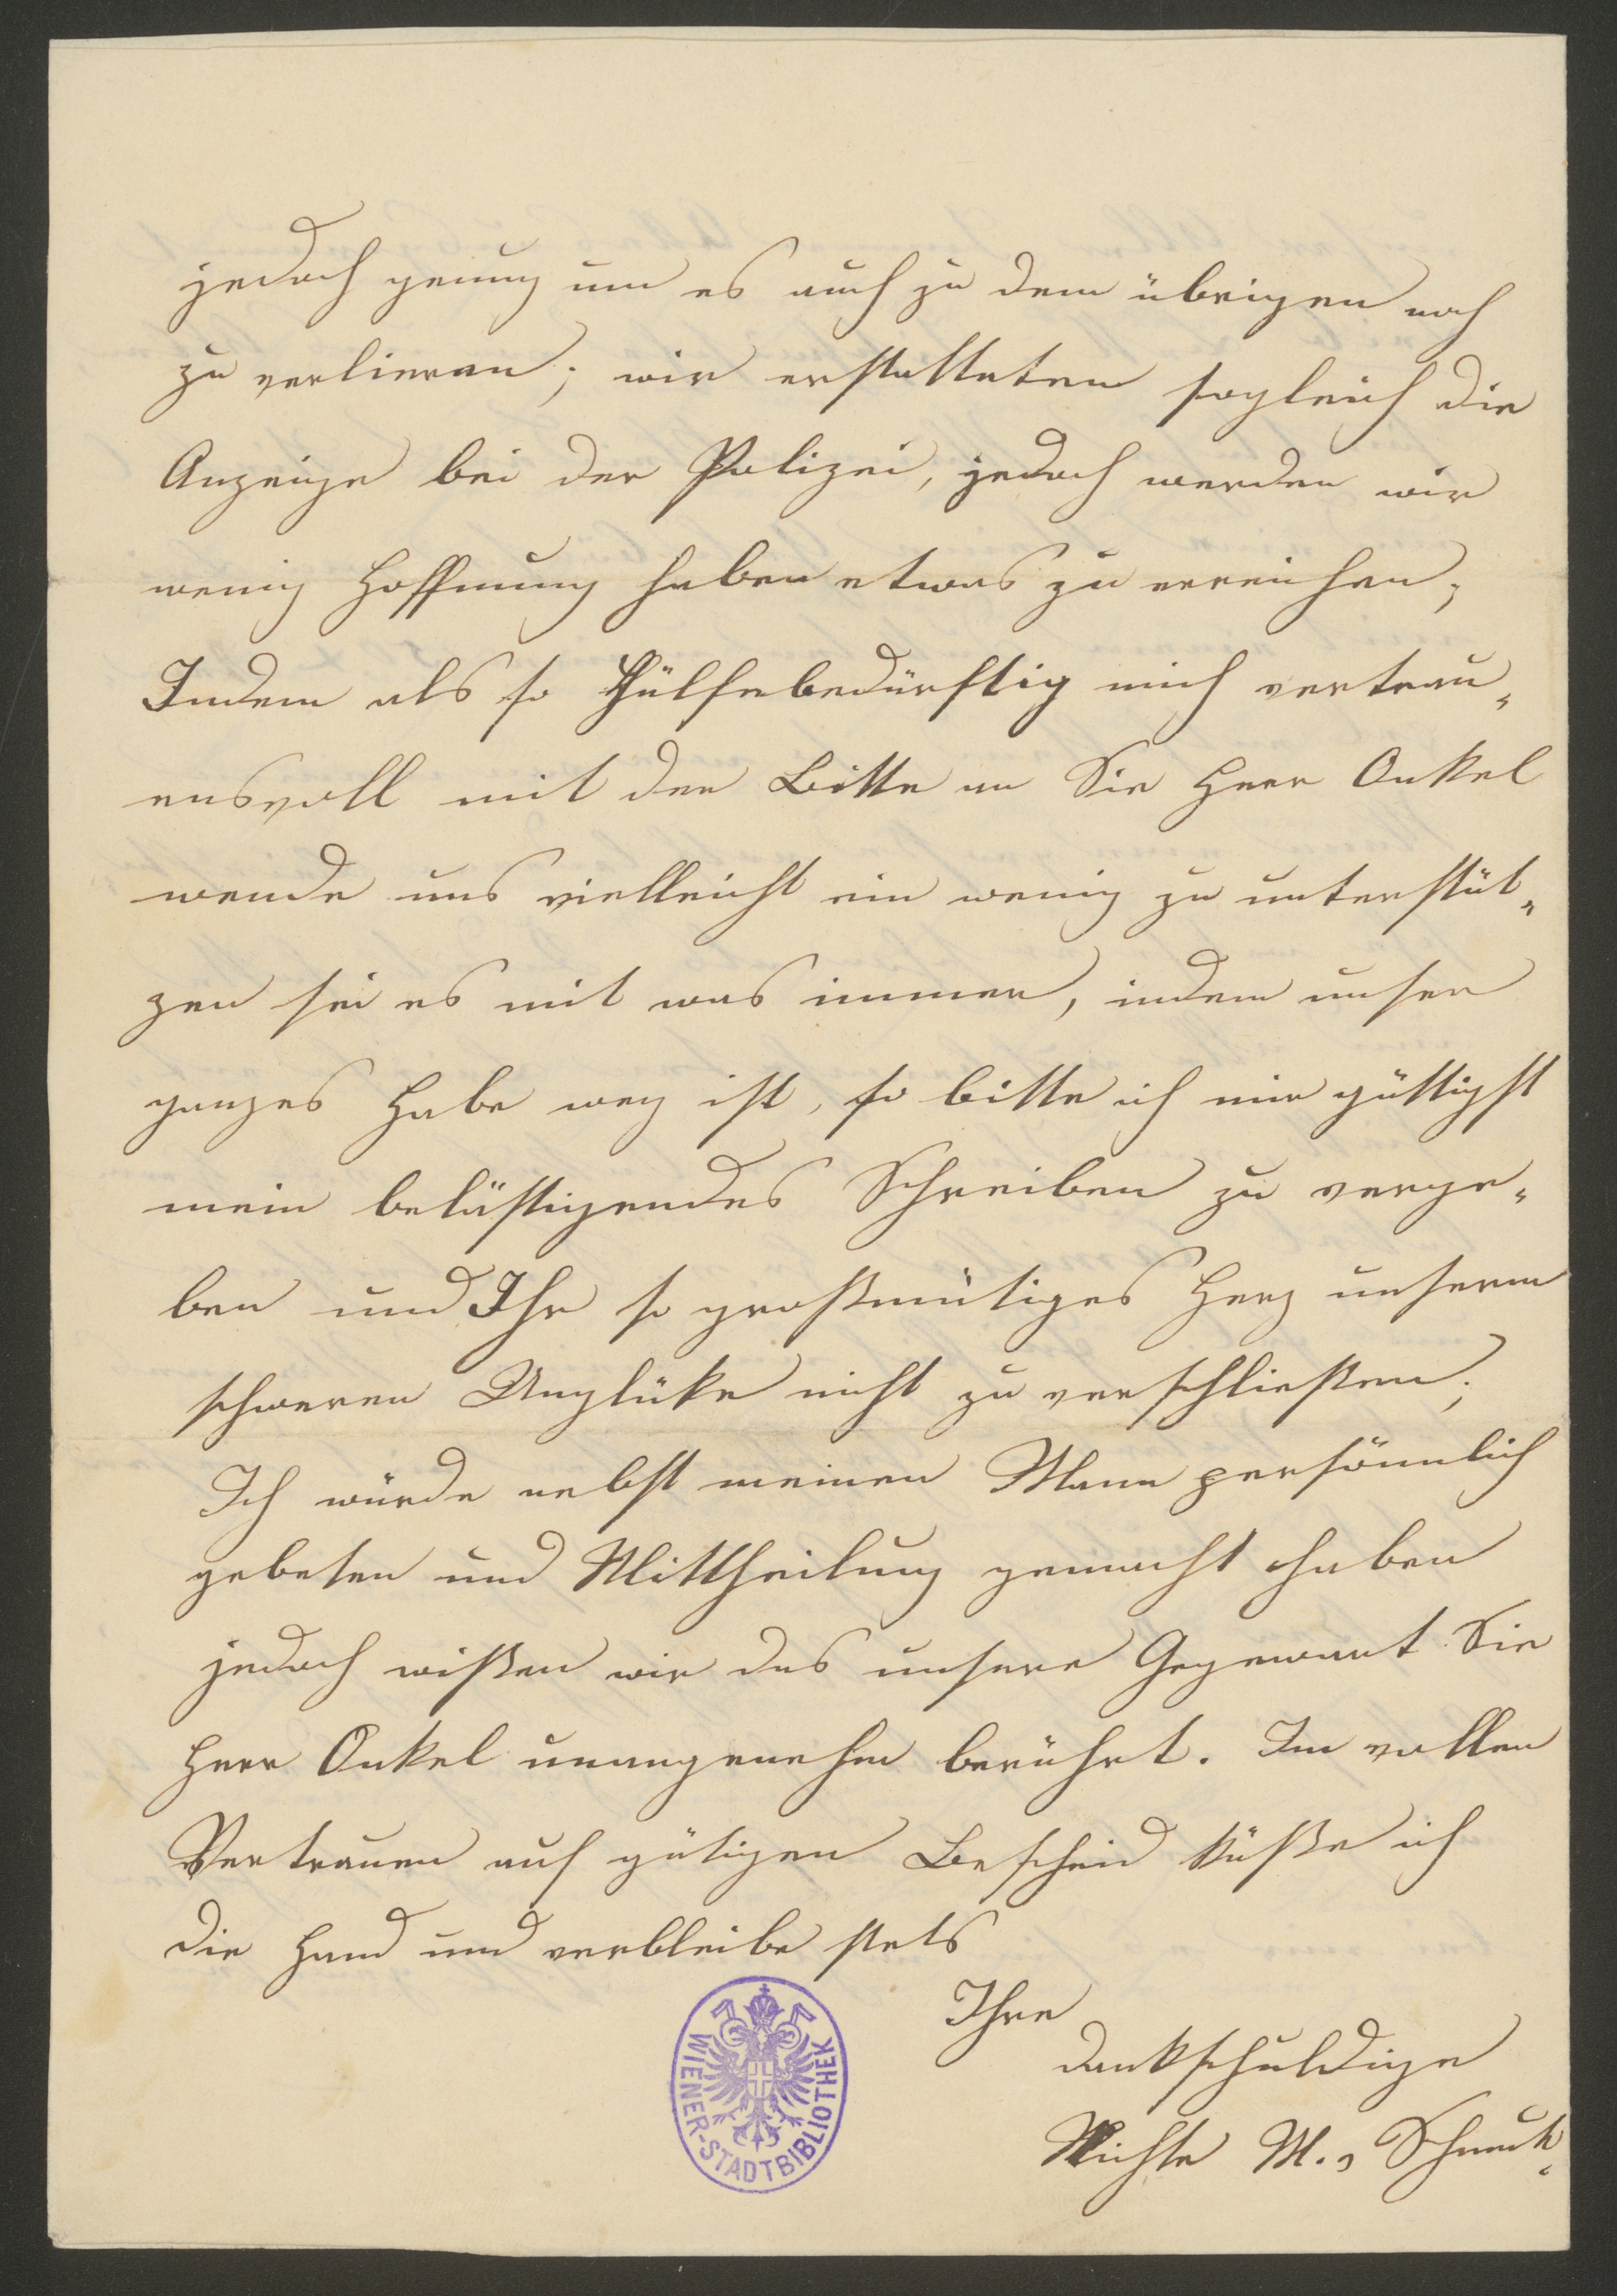 jedoch genug um es auch zu dem übrigen noch
zu verlieren; wir erstatteten sogleich die
Anzeige bei der Polizei, jedoch werden wir
wenig Hoffnung haben etwas zu erreichen;
Indem als so Hülfebedürftig mich vertrau„
ensvoll mit der Bitte an Sie Herr Onkel
wende uns vielleicht ein wenig zu unterstüt„
zen sei es mit was immer, indem unser
ganzes Habe weg ist, so bitte ich mir güttigst
mein belästigendes Schreiben zu verge„
ben und Ihr so großmütiges Herz unserm
schweren Unglüke nicht zu verschließen;
Ich würde nebst meinen Mann persönnlich
gebeten und Mittheilung gemacht haben
jedoch wißen wir das unsere Gegenwart Sie
Herr Onkel unangenehm berührt. Im vollen
Vertrauen auf gütigen Bescheid küße ich
die Hand und verbleibe stets
Ihre
dankschuldige
Nichte M. v
WIENER-STADTBIBLIOTHEK